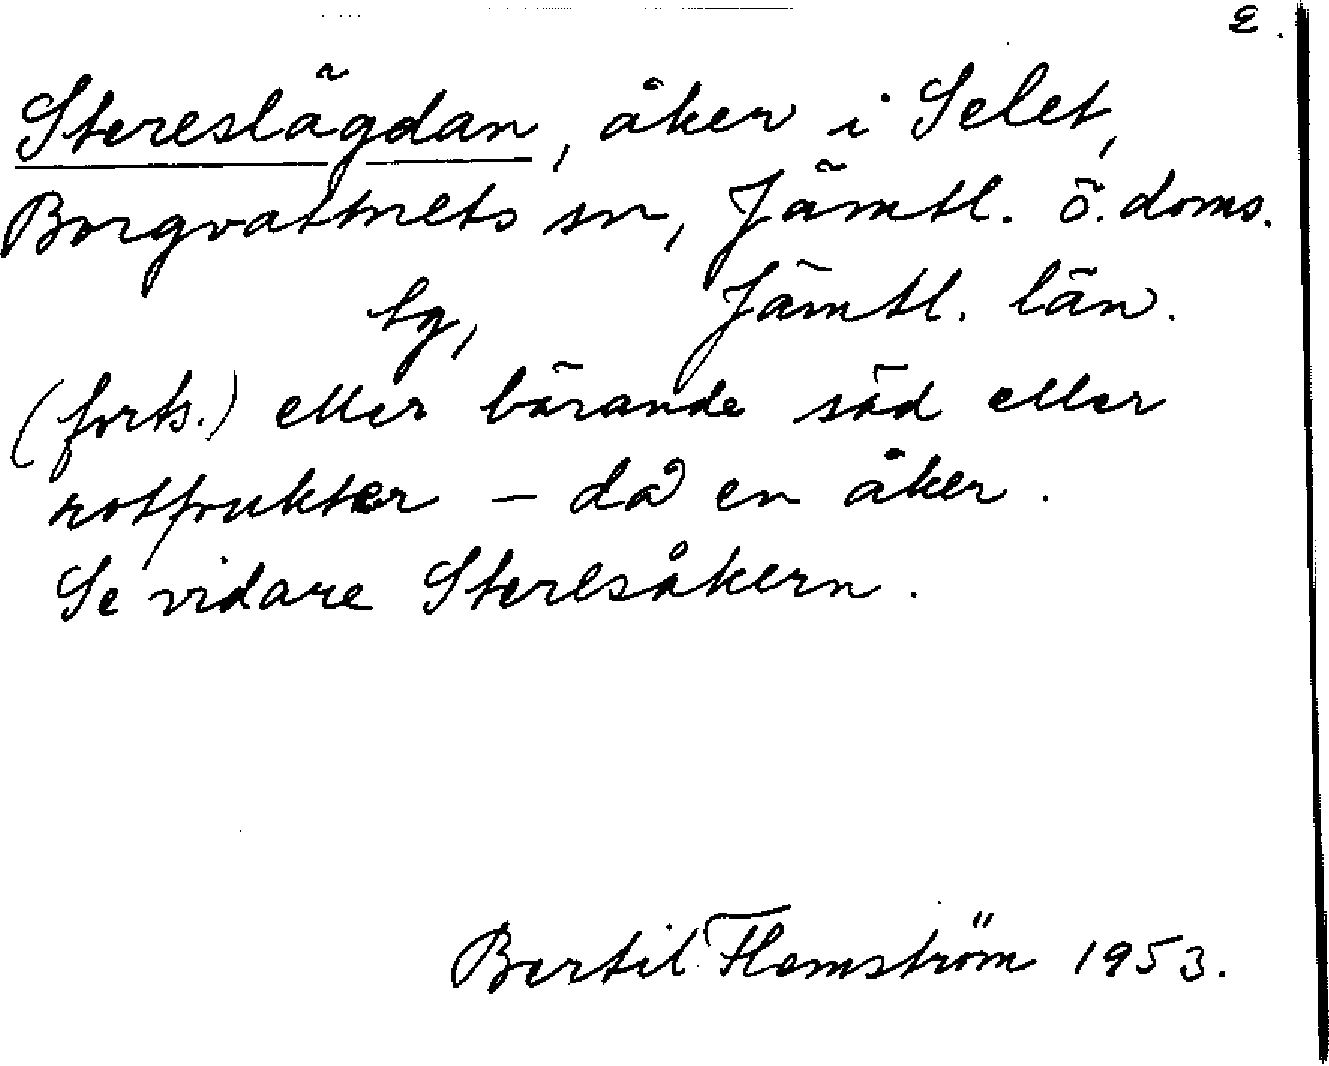 2.
Stereslägdan, åker i Selet,
Borgvattnets sn, Jämtl. ö. doms.
tg, Jämtl. län.
(forts.) eller bärande säd eller
rotfrukter – då en åker.
Se vidare Steresåkern.
Bertil Flemström 1953.